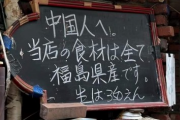 中国人へ。
当店の食材は全て
福島県産です。
半は350えん